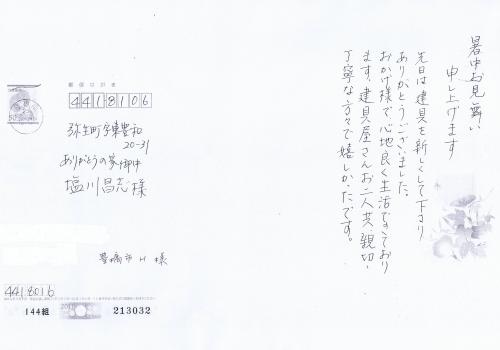 郵便はがき
4418106
弥生町字東豊和
20-31
ありがとうの家御中
塩川昌志様
豊橋市 H 様
4418016
144組 213032
暑中お見舞い
申し上げます
先日は建具を新しくして下さり
ありがとうございました。
おかげ様で心地良く生活できており
ます。建具屋さんお二人共、親切、
丁寧な方々で嬉しかったです。